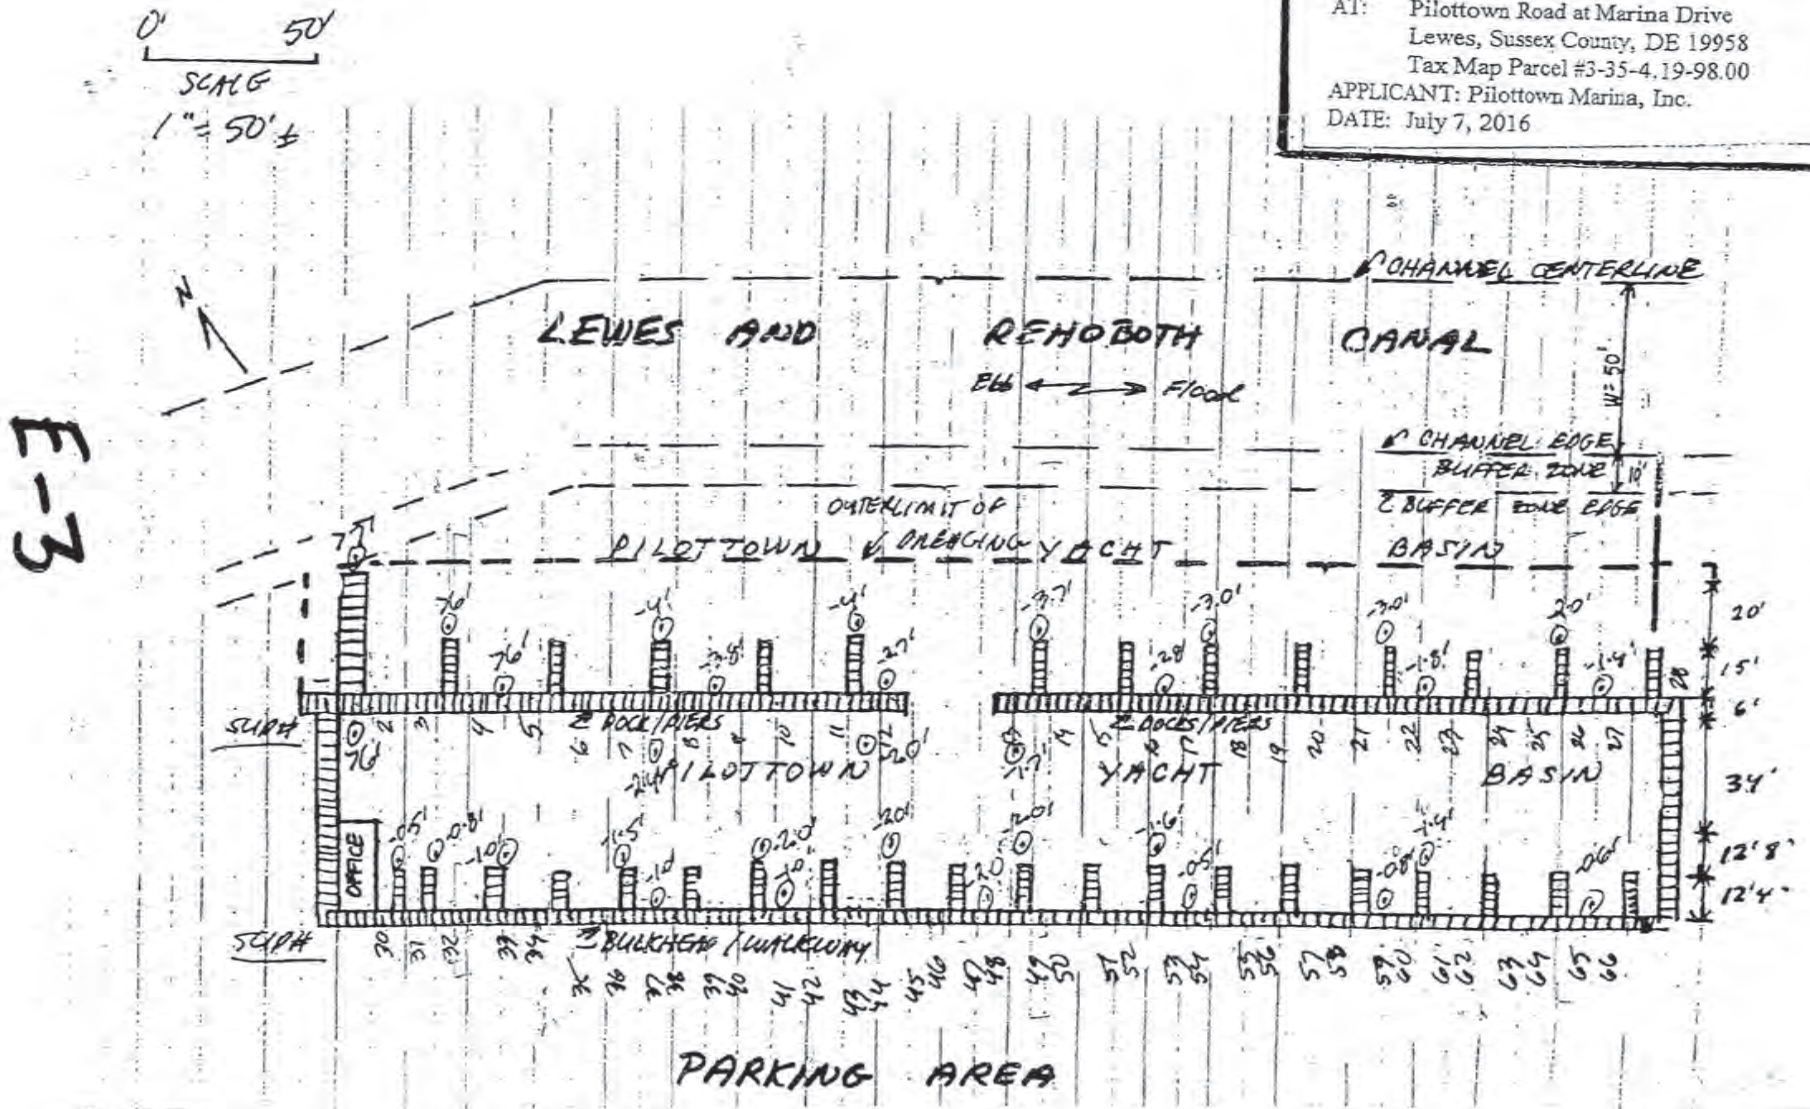 0' 50'
SCALE
1" = 50' ±
AT: Pilottown Road at Marina Drive
Lewes, Sussex County, DE 19958
Tax Map Parcel #3-35-4.19-98.00
APPLICANT: Pilottown Marina, Inc.
DATE: July 7, 2016
N
E-3
CHANNEL CENTERLINE
LEWES AND REHOBOTH CANAL
Ebb Flood
W=50'
CHANNEL EDGE
BUFFER ZONE
BUFFER ZONE EDGE
OUTERLIMIT OF
DREDGING
PILOTTOWN YACHT BASIN
-4' -4' -3.7' -3.0' -3.0' -2.0'
-3.8' -2.7' -2.8' -1.8' -1.4'
20'
15'
6'
34'
12'8"
12'4"
28
SLIP#
2 3 4 5 6 7 8 9 10 11 12 14 15 16 17 18 19 20 21 22 23 24 25 26 27
DOCK/PIERS DOCKS/PIERS
PILOTTOWN YACHT BASIN
OFFICE
-0.5' -0.8' -1.0' -1.5' -2.0' -2.0' -2.0' -1.6' -1.4'
-1.0' -1.0' -2.0 -0.5' -0.8' -0.6'
SLIP#
BULKHEAD / WALKWAY
30 31 32 34 35 36 37 38 39 40 41 42 43 44 45 46 47 48 49 50 51 52 53 54 55 56 57 58 59 60 61 62 63 64 65 66
PARKING AREA